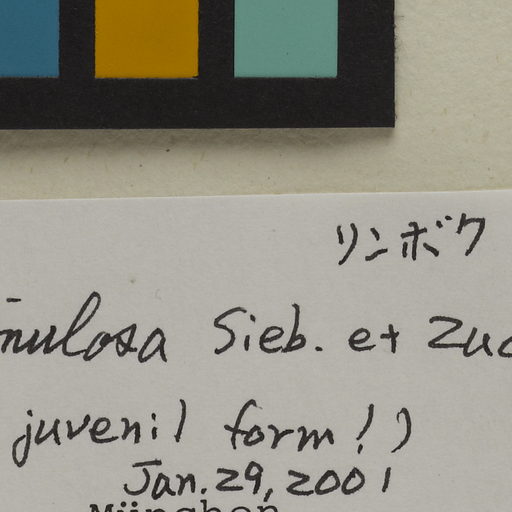 リンボク
inulosa Sieb. et Zuc
juvenil form!)
Jan. 29, 2001
München